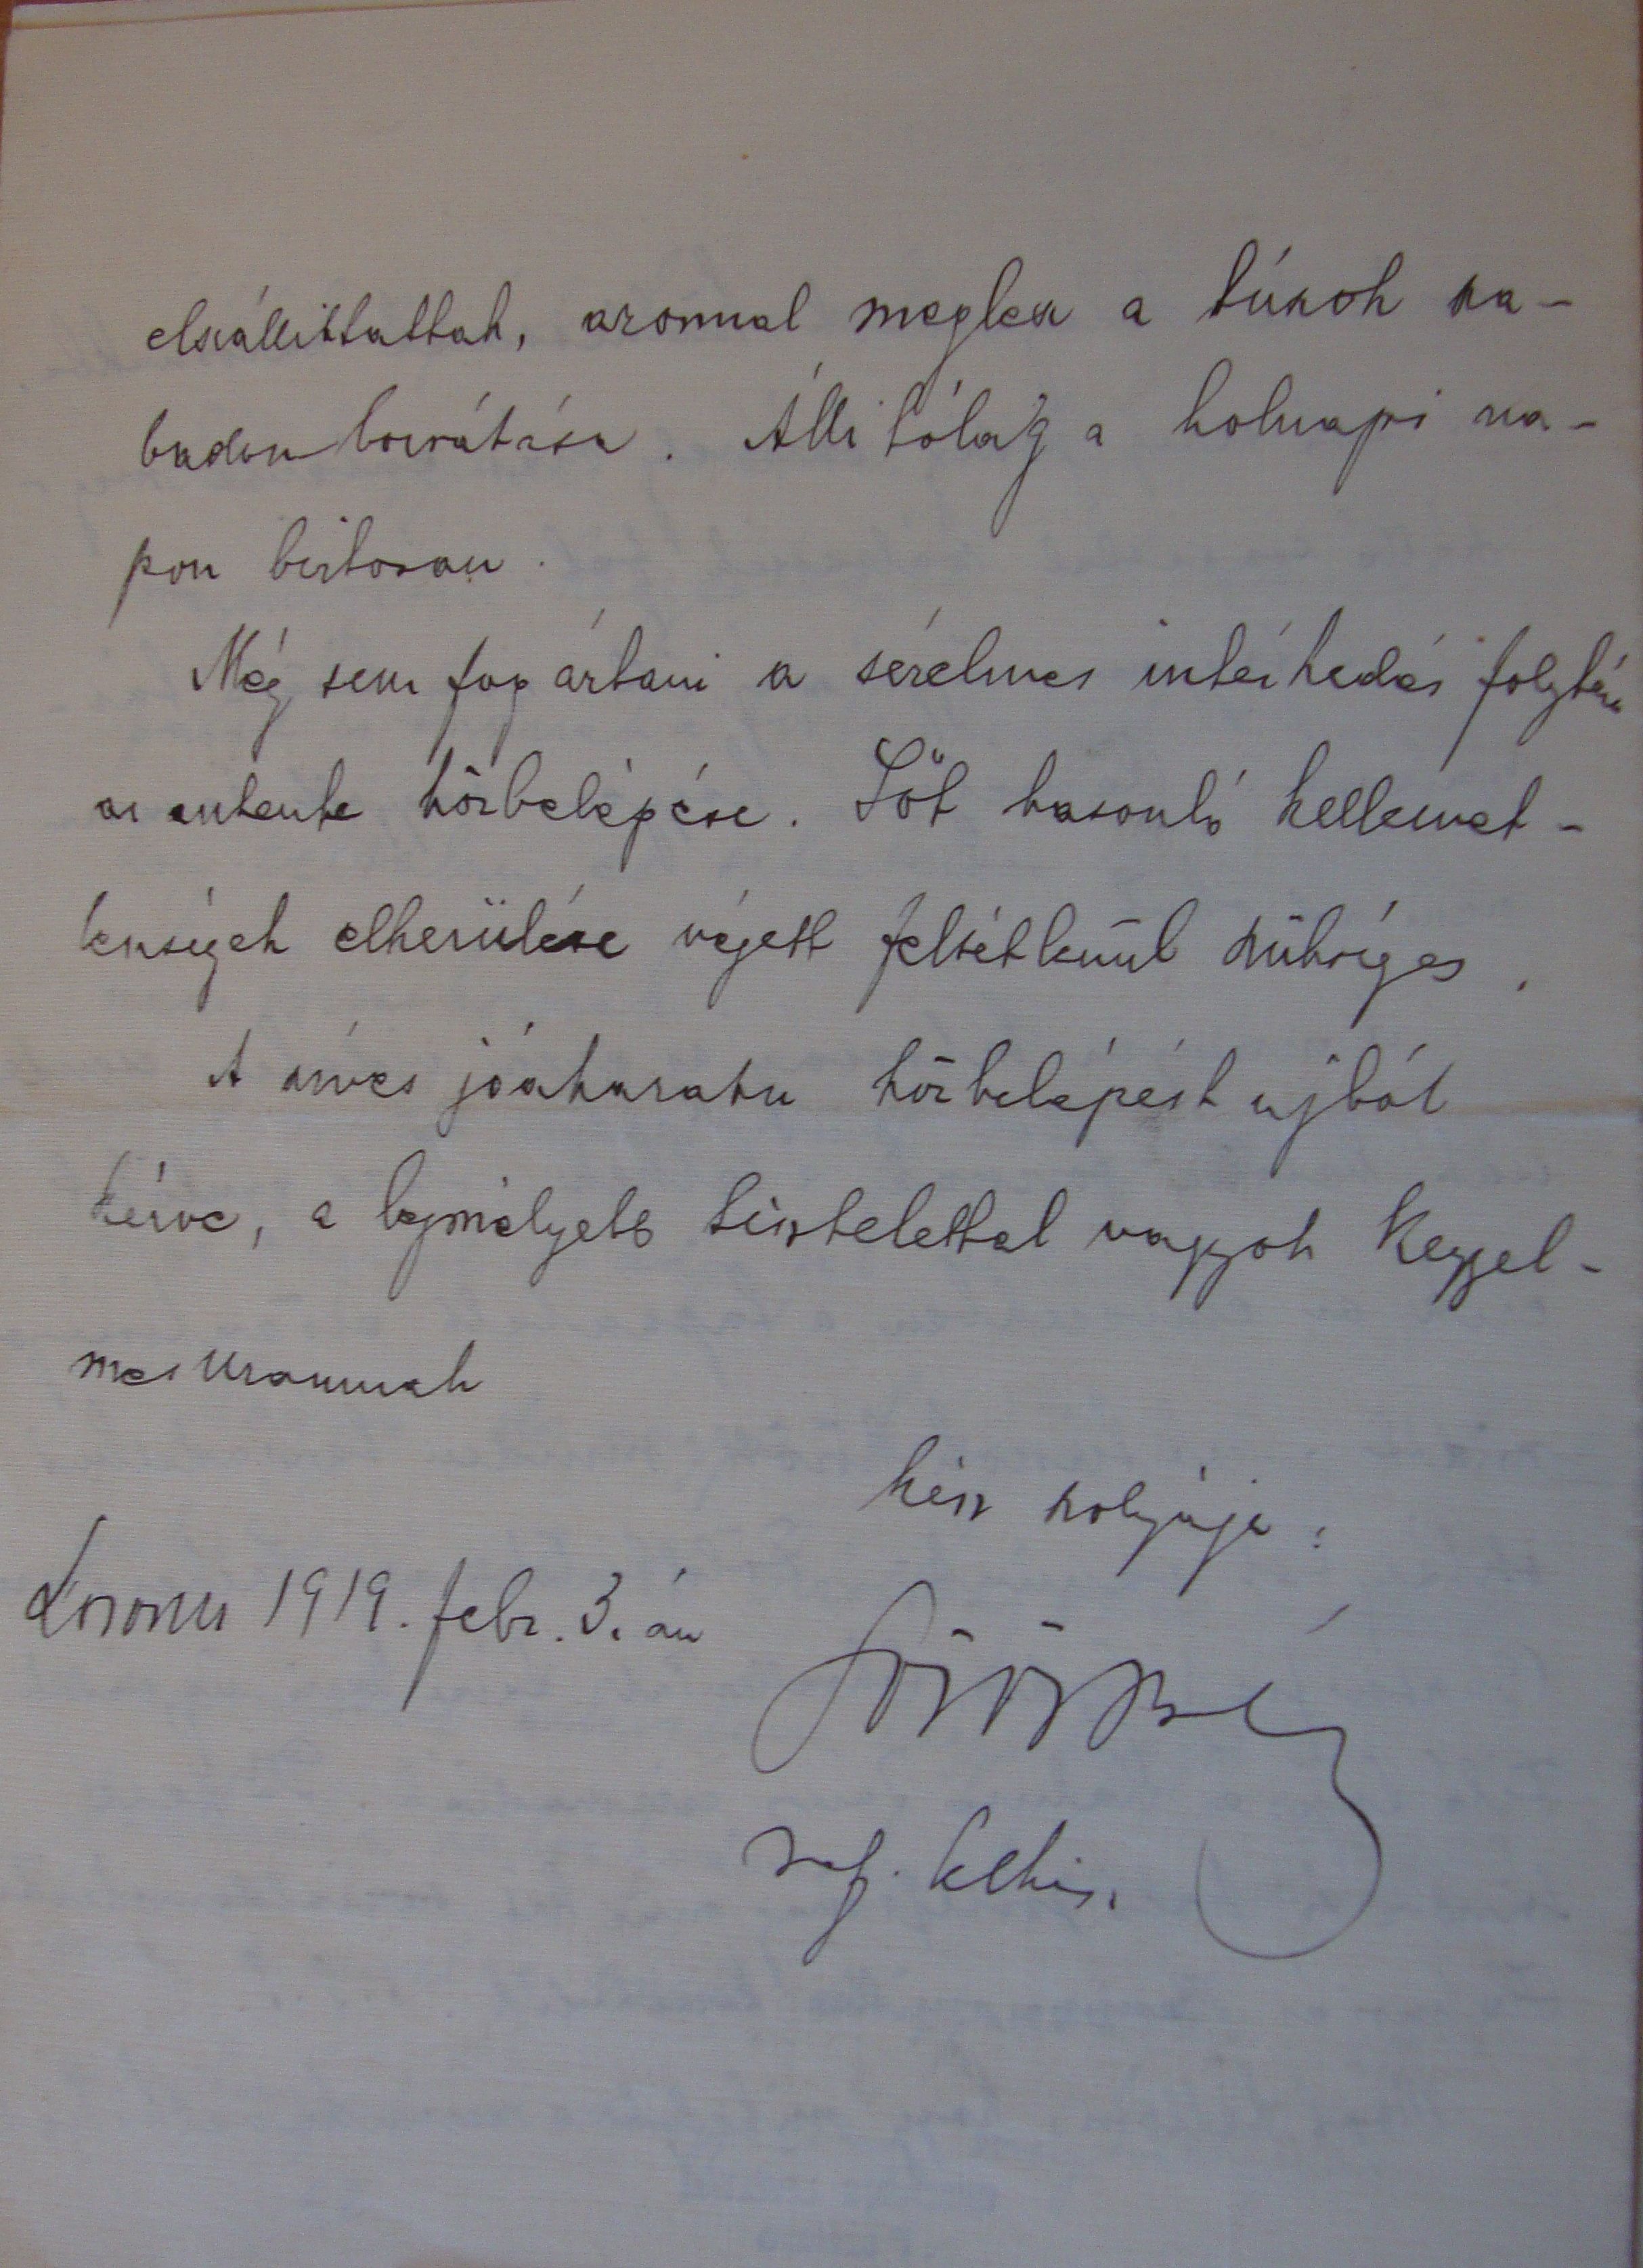 elszállittattak, azonnal meglesz a túszok sza-
badon bocsátása. Állitólag a holnapi na-
pon biztosan.
Még sem fog ártani a sérelmes intézkedés folytán
az entente közbelépése. Sőt hasonló kellemet-
lenségek elkerülése végett feltétlenül szükséges.
A szíves jóakaratu közbelépést ujból
kérve, a legmélyebb tisztelettel vagyok Kegyel-
mes Uramnak
kész szolgája:
Losonc 1919. febr. 3. án
ref. lelkész.